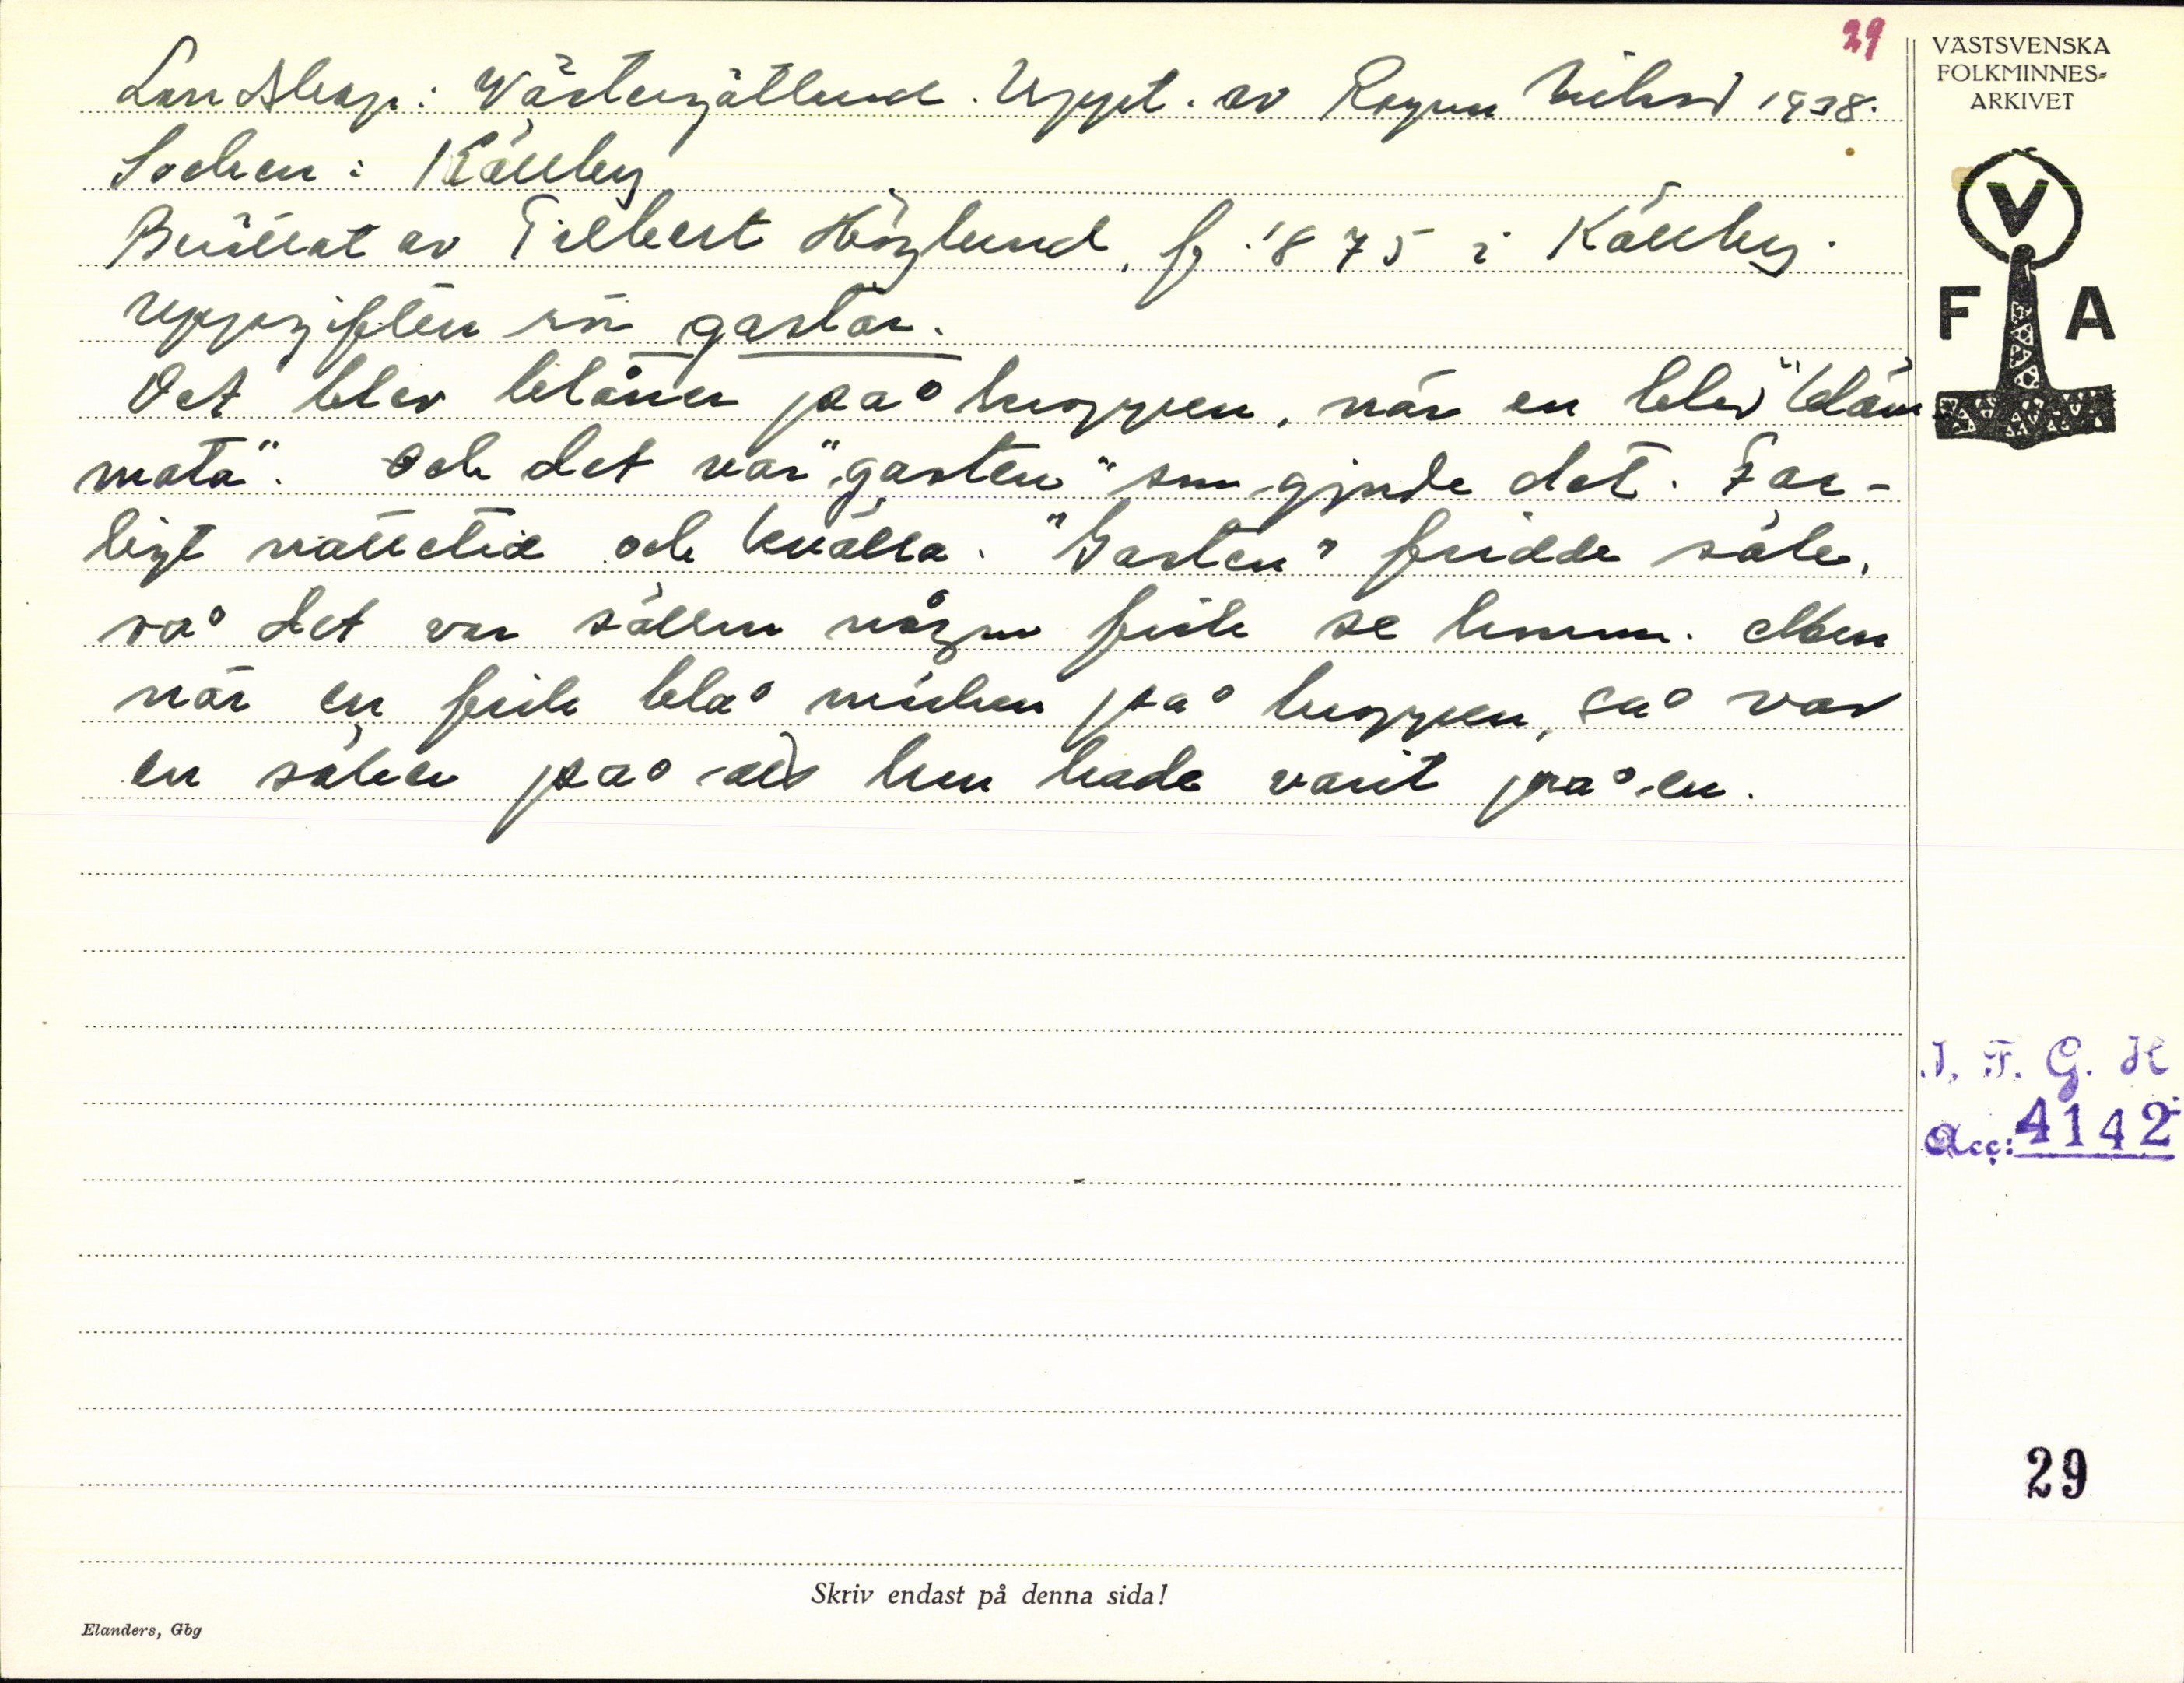 29
VÄSTSVENSKA
FOLKMINNES-
ARKIVET
Landskap: Västergötland. Uppt. av Ragnar Nilsson 1938.
Socken: Källby
Berättat av Filbert Höglund, f. 1875 i Källby.
Uppgiften rör gastar.
V
F A
Det blev blåner på kroppen, när en blev "kläm-
mata". Och det var "gasten" som gjorde det. Far-
ligt nattetid och kvälla. "Gasten" fridde säk,
så det var sällan någon fick se honom. Men
när en fick blå märken på kroppen, så var
en säker på att han hade varit på en.
I. F. G. H
Acc: 4142
29
Skriv endast på denna sida!
Elanders, Gbg